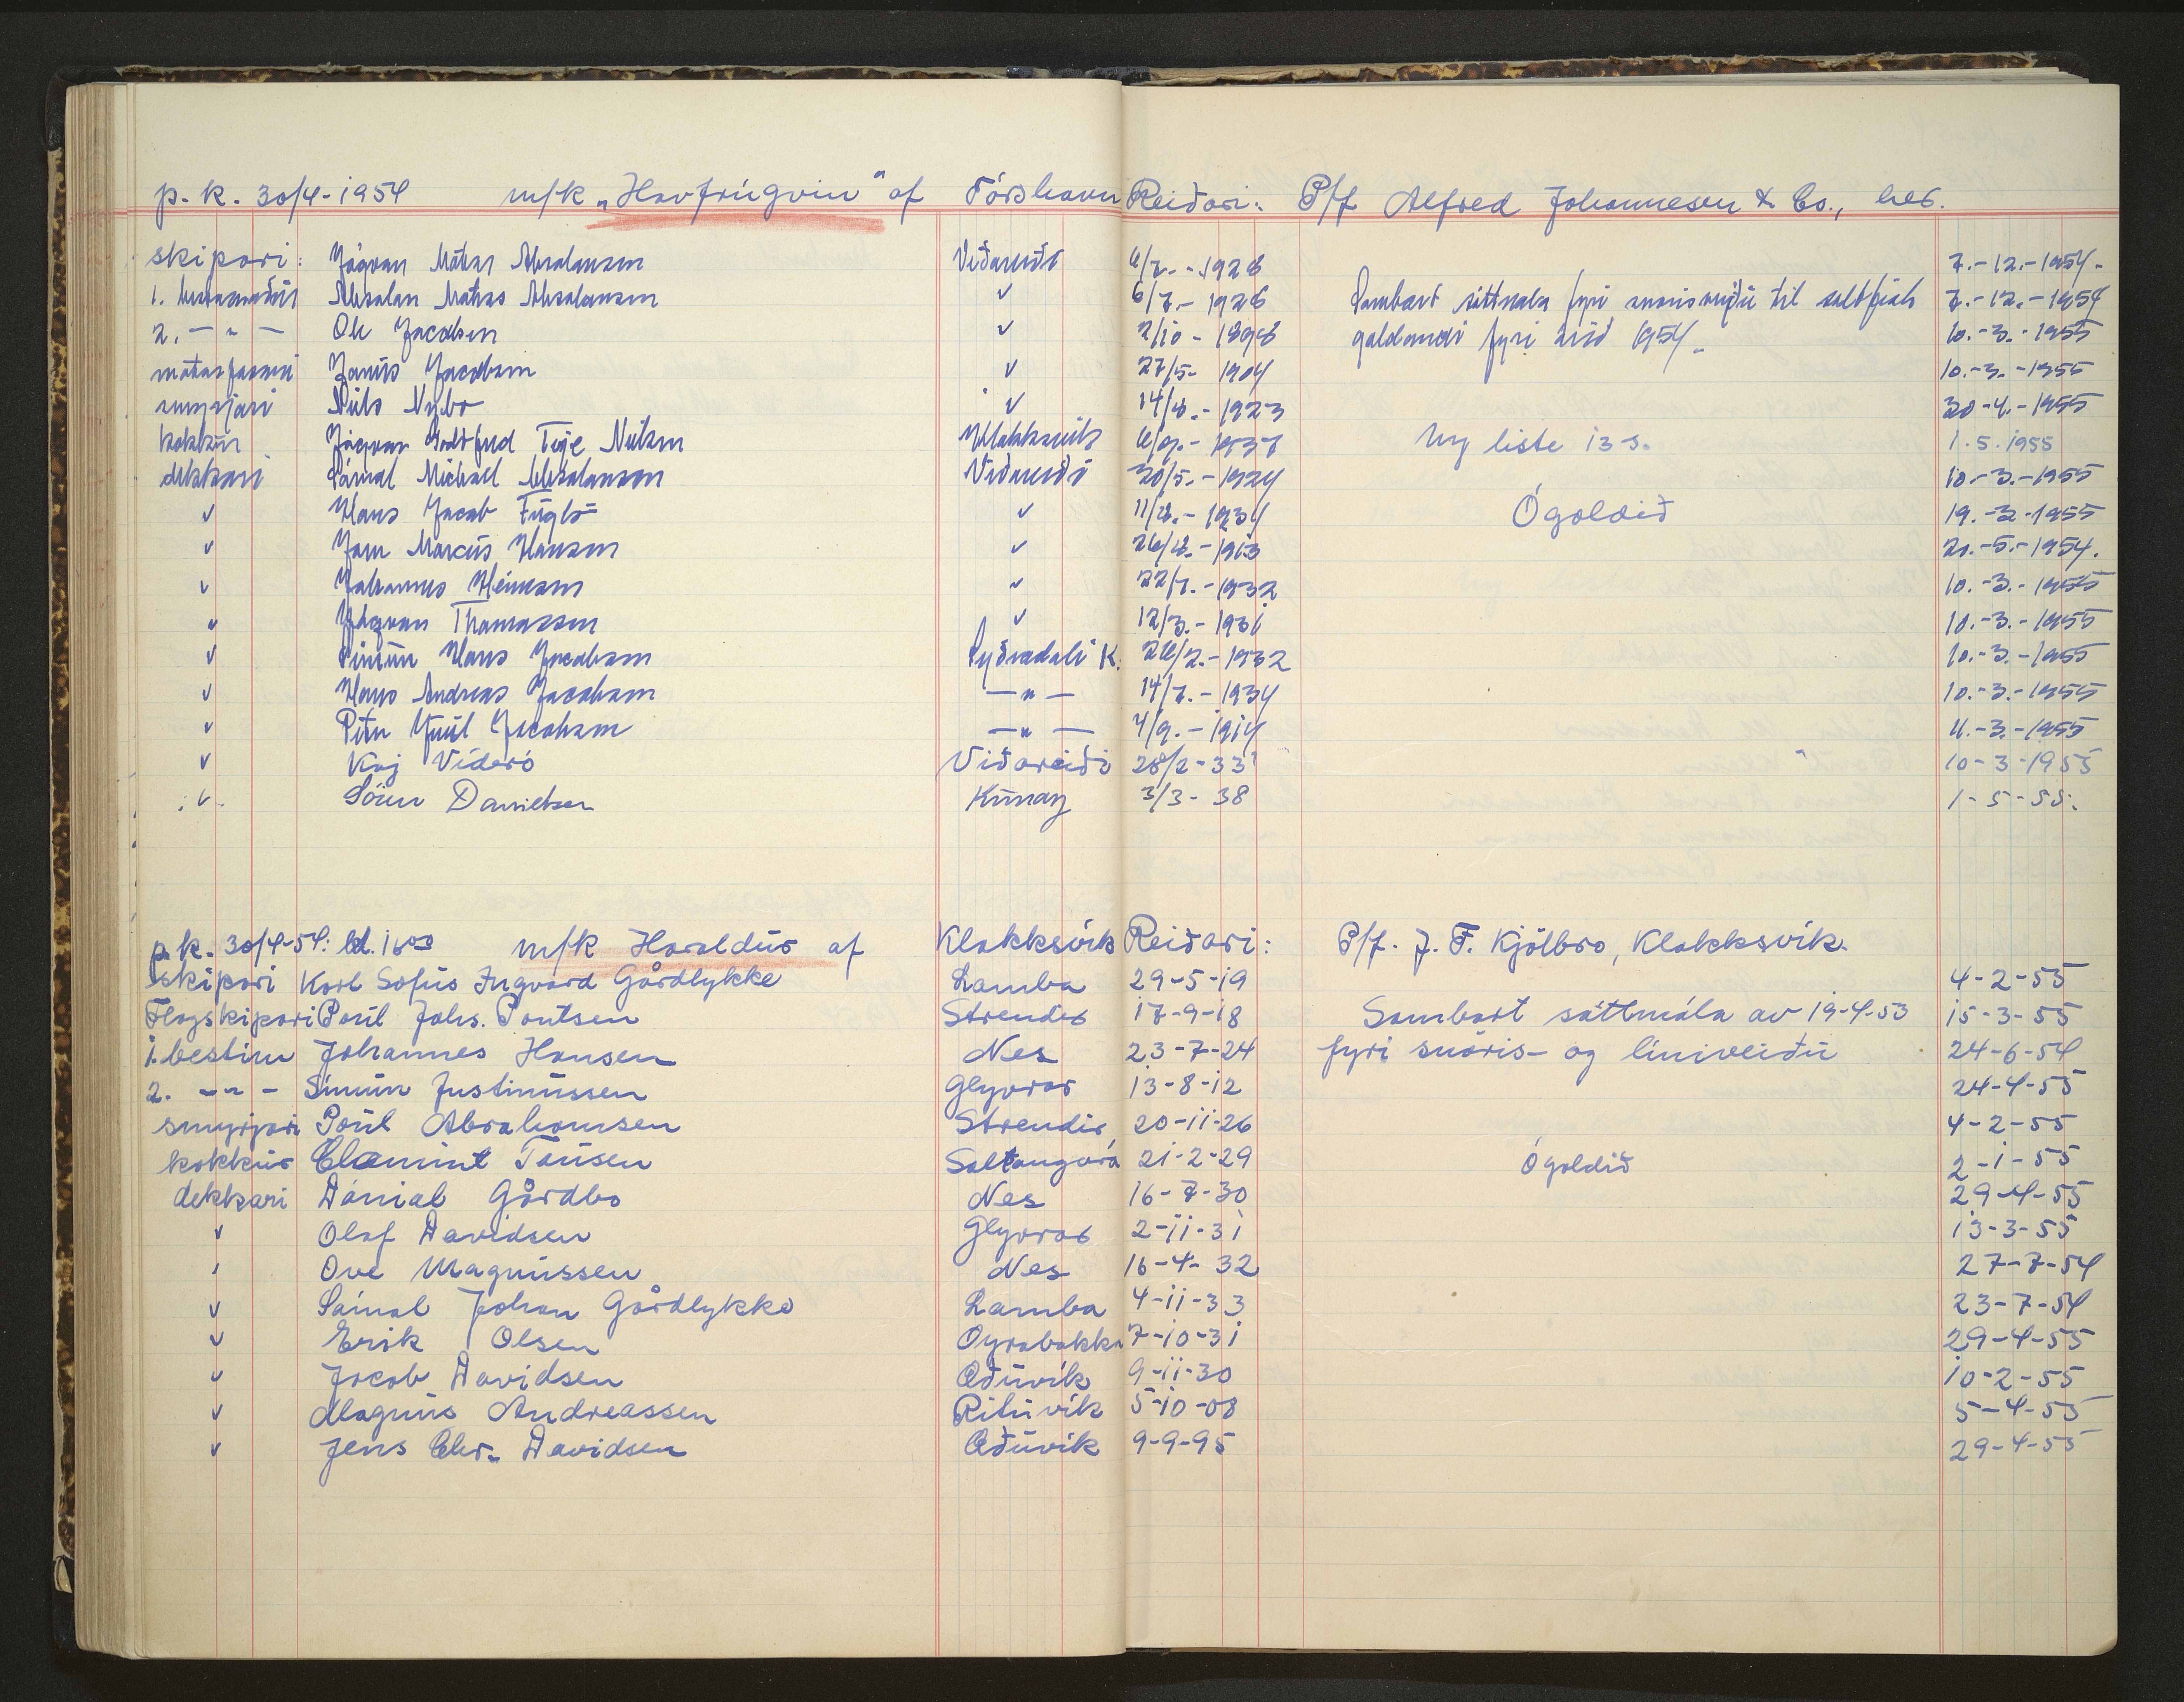 p. k. 30/4-1954 m/k „Havfrúgvin“ af Tórshavn Reiðari: P/f Alfred Johannesen & Co., her.
skipari: Jógvan Mátias Absalonsen Viðareiði 6/7.-1928 7.-12.-1954.
1. bestamaður Absalon Mátias Absalonsen ✓ 6/7.-1926 Sambært sáttmála fyri snørisveiðu til saltfisk 7.-12.-1954
2. —"— Ole Jacobsen ✓ 2/10-1898 galdandi fyri árið 1954. 10.-3.-1955
mátasformi Janus Jacobsen ✓ 27/5-1904 10.-3.-1955
smyrjari Niels Nybo ✓ 14/8.-1923 30-4.-1955
kokkur Jógvan Godtfred Teje Nielsen Klakksvík 6/9.-1937 Ny liste 13-5. 1.5.1955
dekkari Sámal Michael Absalonsen Viðareiði 30/5.-1924 10.-3.-1955
✓ Hans Jacob Fuglø ✓ 11/8.-1934 Ógoldið 19.-3-1955
✓ Jørn Marcus Hansen ✓ 26/8.-1913 21.-5.-1954.
✓ Johannus Heinesen ✓ 22/7.-1932 10.-3.-1955
✓ Jógvan Thomassen ✓ 12/3.-1931 10.-3.-1955
✓ Símun Hans Jacobsen Syðradali K. 26/2.-1932 10.-3.-1955
✓ Hans Andreas Jacobsen —"— 14/7.-1934 10.-3.-1955
✓ Peter Juul Jacobsen —"— 4/9.-1914 11.-3.-1955
✓ Kaj Viderö Viðareiði 28/2-33 10-3-1955
✓ Sörin Danielsen Kunoy 3/3-38 1-5-55.
p.k. 30/4-54: kl. 16⁰⁰ m/k Haraldur af Klakksvík Reiðari: P/f. J. F. Kjölbro, Klakksvík.
skipari Karl Sofus Ingvard Gårdlykke Lamba 29-5-19 4-2-55
Flagskipari Poul Johs. Poulsen Strender 17-9-18 Sambært sáttmála av 19-4-53 15-3-55
1. bestim Johannes Hansen Nes 23-7-24 fyri snøris- og línuveiðu 24-6-54
2. —"— Simun Justinussen Glyvrar 13-8-12 24-4-55
smyrjari Poul Abrahamsen Strendir 20-11-26 4-2-55
kokkur Clemint Tausen Saltangará 21-2-29 Ógoldið 2-1-55
dekkari Dánial Gårdbo Nes 16-7-30 29-4-55
✓ Olaf Davidsen Glyvrar 2-11-31 13-3-55
✓ Ove Magnussen Nes 16-4-32 27-7-54
✓ Sámal Johan Gårdlykke Lamba 4-11-33 23-7-54
✓ Erik Olsen Oyrabakka 7-10-31 29-4-55
✓ Jacob Davidsen Æðuvík 9-11-30 10-2-55
✓ Magnus Andreassen Rituvík 5-10-08 5-4-55
✓ Jens Chr. Davidsen Æðuvík 9-9-95 29-4-55